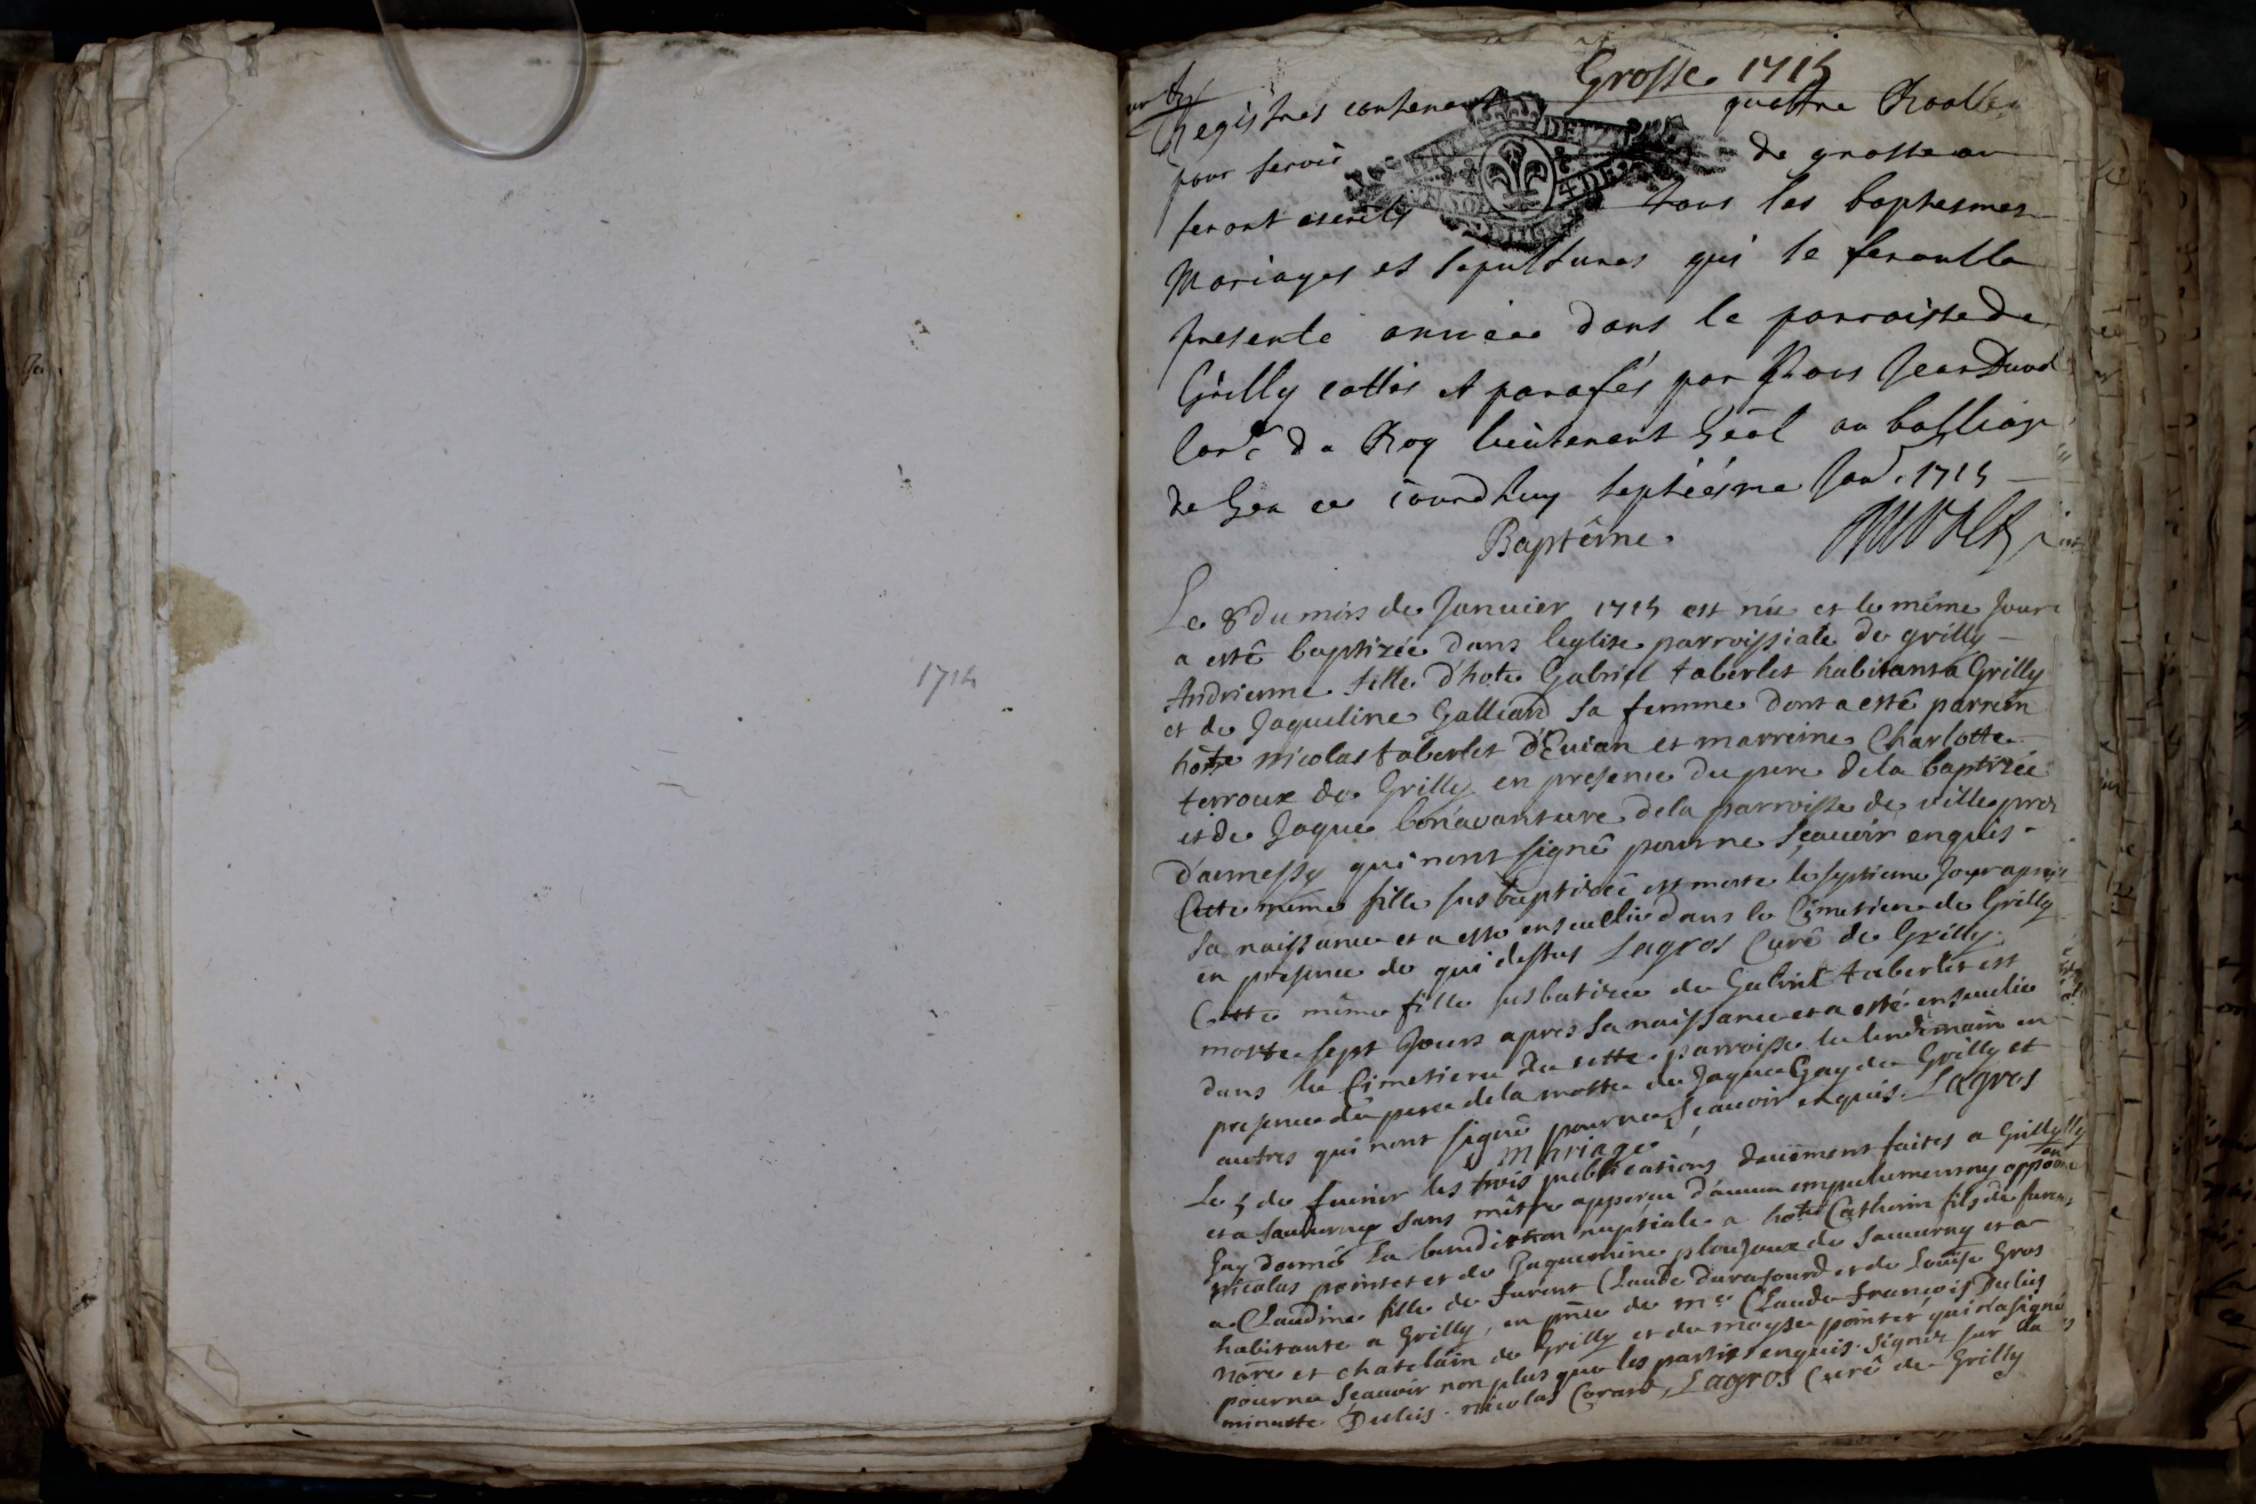 1714
Grosse 1715
Registres contenant quattre Roolles
pour servir de grosse ou
seront escrits tous les baptesmes
Mariages et sepultures qui se feront la
presente annee dans la parroisse de
Grilly cottés et parafés par Nous Jean Duval
Con.r du Roy lieutenant Gēāl au balliage
de Gex ce jourdhuy septiésme Jan.r 1715
Baptême.
Le 8 du mois de Januier 1715 est née et le même Jour
a esté baptizée dans leglise parroissiale de grilly
Andrienne fille d'hōte Gabriel taberlet habitant a Grilly
et de Jaqueline Galliard sa femme dont a esté parrein
hōte Nicolas taberlet d'Euian et marreine Charlotte
terroux de Grilly en presence du pere de la baptizée
et de Jaque bonauanture de la parroisse de ville pres
d'annessy qui n'ont signé pour ne sçauoir enquis.
Cette même fille sus baptizée est morte le septieme Jour apres
sa naissance et a esté enseuelie dans le Cimetiere de Grilly
en presence de qui dessus Lagros Curé de Grilly.
Cette même fille sus batizée de Gabriel taberlet est
morte sept Jours apres sa naissance et a esté enseuelie
dans le Cimetiere de cette parroisse le lendemain en
presence du pere de la morte de Jaque Gay de Grilly et
autres qui n'ont signé pour ne sçauoir enquis. Lagros
Mariage
Le 5 de feurier les trois publications deuëment faites a Grilly
et a Sauuerny sans m'être apperçu d'aucun empechement ny oppôon
J'ay donné la benediction nuptiale a hōte Catherin fils de furent
Nicolas pointet et de Jaquemine ploujoux de Sauuerny et a
a Claudine fille de furent Claude durafourd et de Louïse Gros
habitante a Grilly, en pñce de m.e Claude françois Dulius
nore et chatelain de Grilly et de moyse pointet qui n'a signé
pour ne sçauoir non plus que les parties enquis. signez sur la
minutte Dulius. nicolas Corand, Lagros Curé de Grilly